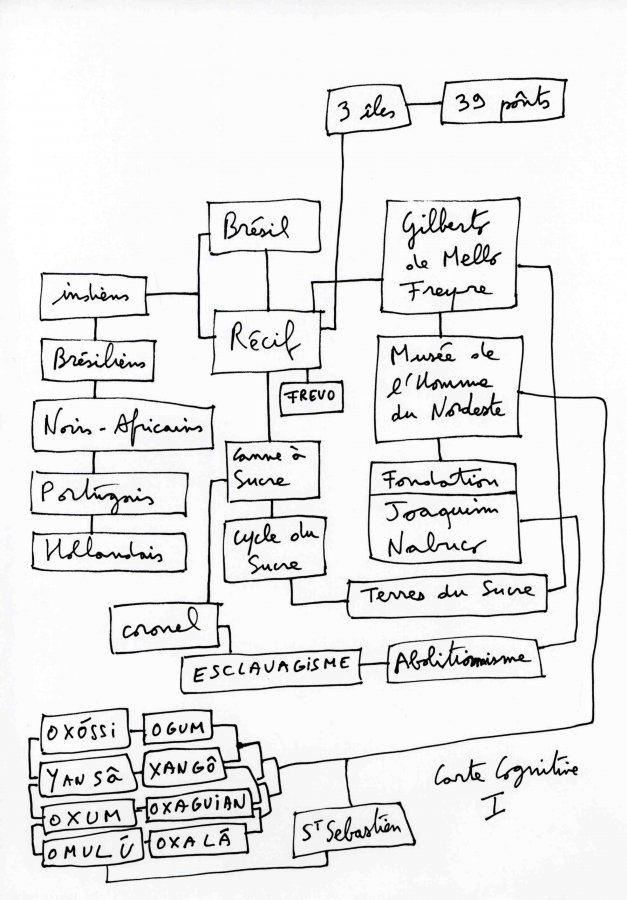 3 îles
39 pônts
Brésil
Gilberto
de Mello
Freyre
indiens
Récif
Brésiliens
FREVO
Musée de
l'Homme
du Nordeste
Noirs-Africains
Canne à
Sucre
Portugais
Fondation
Joaquim
Nabuco
Hollandais
Cycle du
Sucre
Terres du Sucre
coronel
ESCLAVAGISME
Abolitionnisme
OXÓSSI
OGUM
YANSÃ
XANGÔ
OXUM
OXAGUIAN
OMULÚ
OXALÁ
ST Sebastién
Carte Cognitive
I